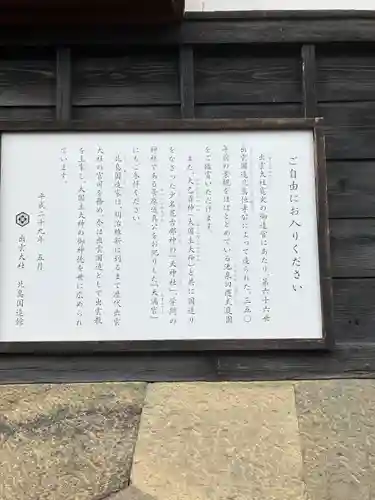 ご自由にお入りください
出雲大社真東の御造営にあたり、第六十六世
出雲國造北島恒孝公によって造られた、三五〇
年前の景観をほぼとどめている池泉回遊式庭園
をご鑑賞いただけます。
また、大己貴神（大国主大神）と共に国造り
をなさった少名毘古那神の「天神社」、学問の
神様である菅原道真公をお祀りした「天満宮」
にもご参拝ください。
北島国造家は、明治維新に到るまで歴代出雲
大社の宮司を務め、今は出雲国造として出雲教
を主宰し、大国主大神の御神徳を世に広められ
ています。
平成二十九年 五月
出雲大社 北島国造館